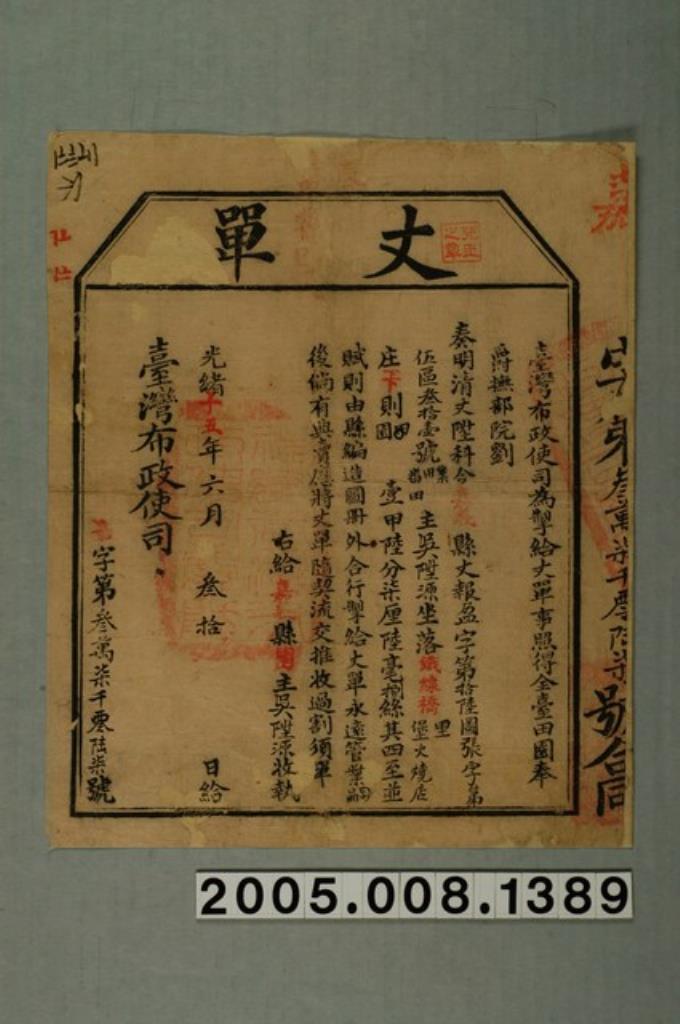 丈單
臺灣布政使司為掣給丈單事照得全臺田園奉
爵撫部院劉
奏明清丈陞科合嘉義縣丈報盈字第拾陸圖張字第
伍區叁拾壹號業田主吳陞源坐落鐵線橋里堡火燒店
庄下則園 壹甲陸分柒厘陸毫捌絲其四至並
賦則由縣編造圖冊外合行掣給丈單永遠管業嗣
後倘有典賣應將丈單隨契流交推收過割須單
右給嘉義縣園主吳陞源收執
光緒十五年六月 叁拾 日給
臺灣布政使司
字第叁萬柒千零陸柒號
叁萬柒千零陸柒號合同
2005.008.1389